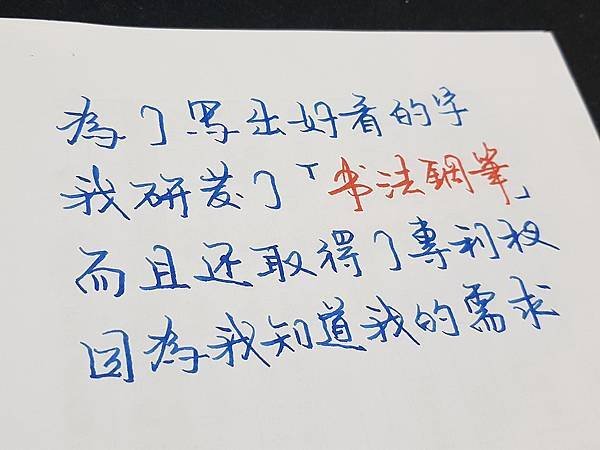 為了写出好看的字
我研发了「书法鋼筆」
而且还取得了專利权
因為我知道我的需求